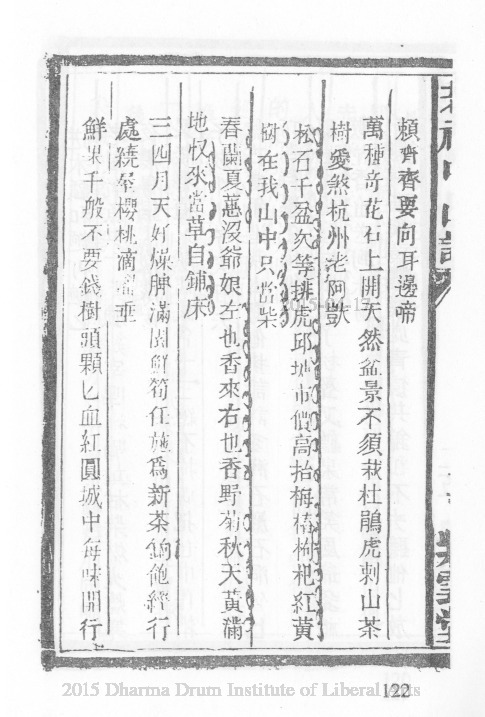 賴齊齊要向耳邊啼
萬種奇花石上開天然盆景不須栽杜鵑虎刺山茶
樹愛煞杭州老阿獃
松石千盆次等排虎邱城市價高抬梅椿枸杞紅黃
樹在我山中只當柴
春蘭夏蕙沒爺娘左也香來右也香野菊秋天黃滿
地収來當草自鋪床
三四月天好燥脾滿園鮮筍任施爲新茶飽經行
處繞屋櫻桃滴溜垂
鮮果千般不要錢樹頭顆匕血紅圓城中每味開行
122
2015 Dharma Drum Institute of Liberal Arts